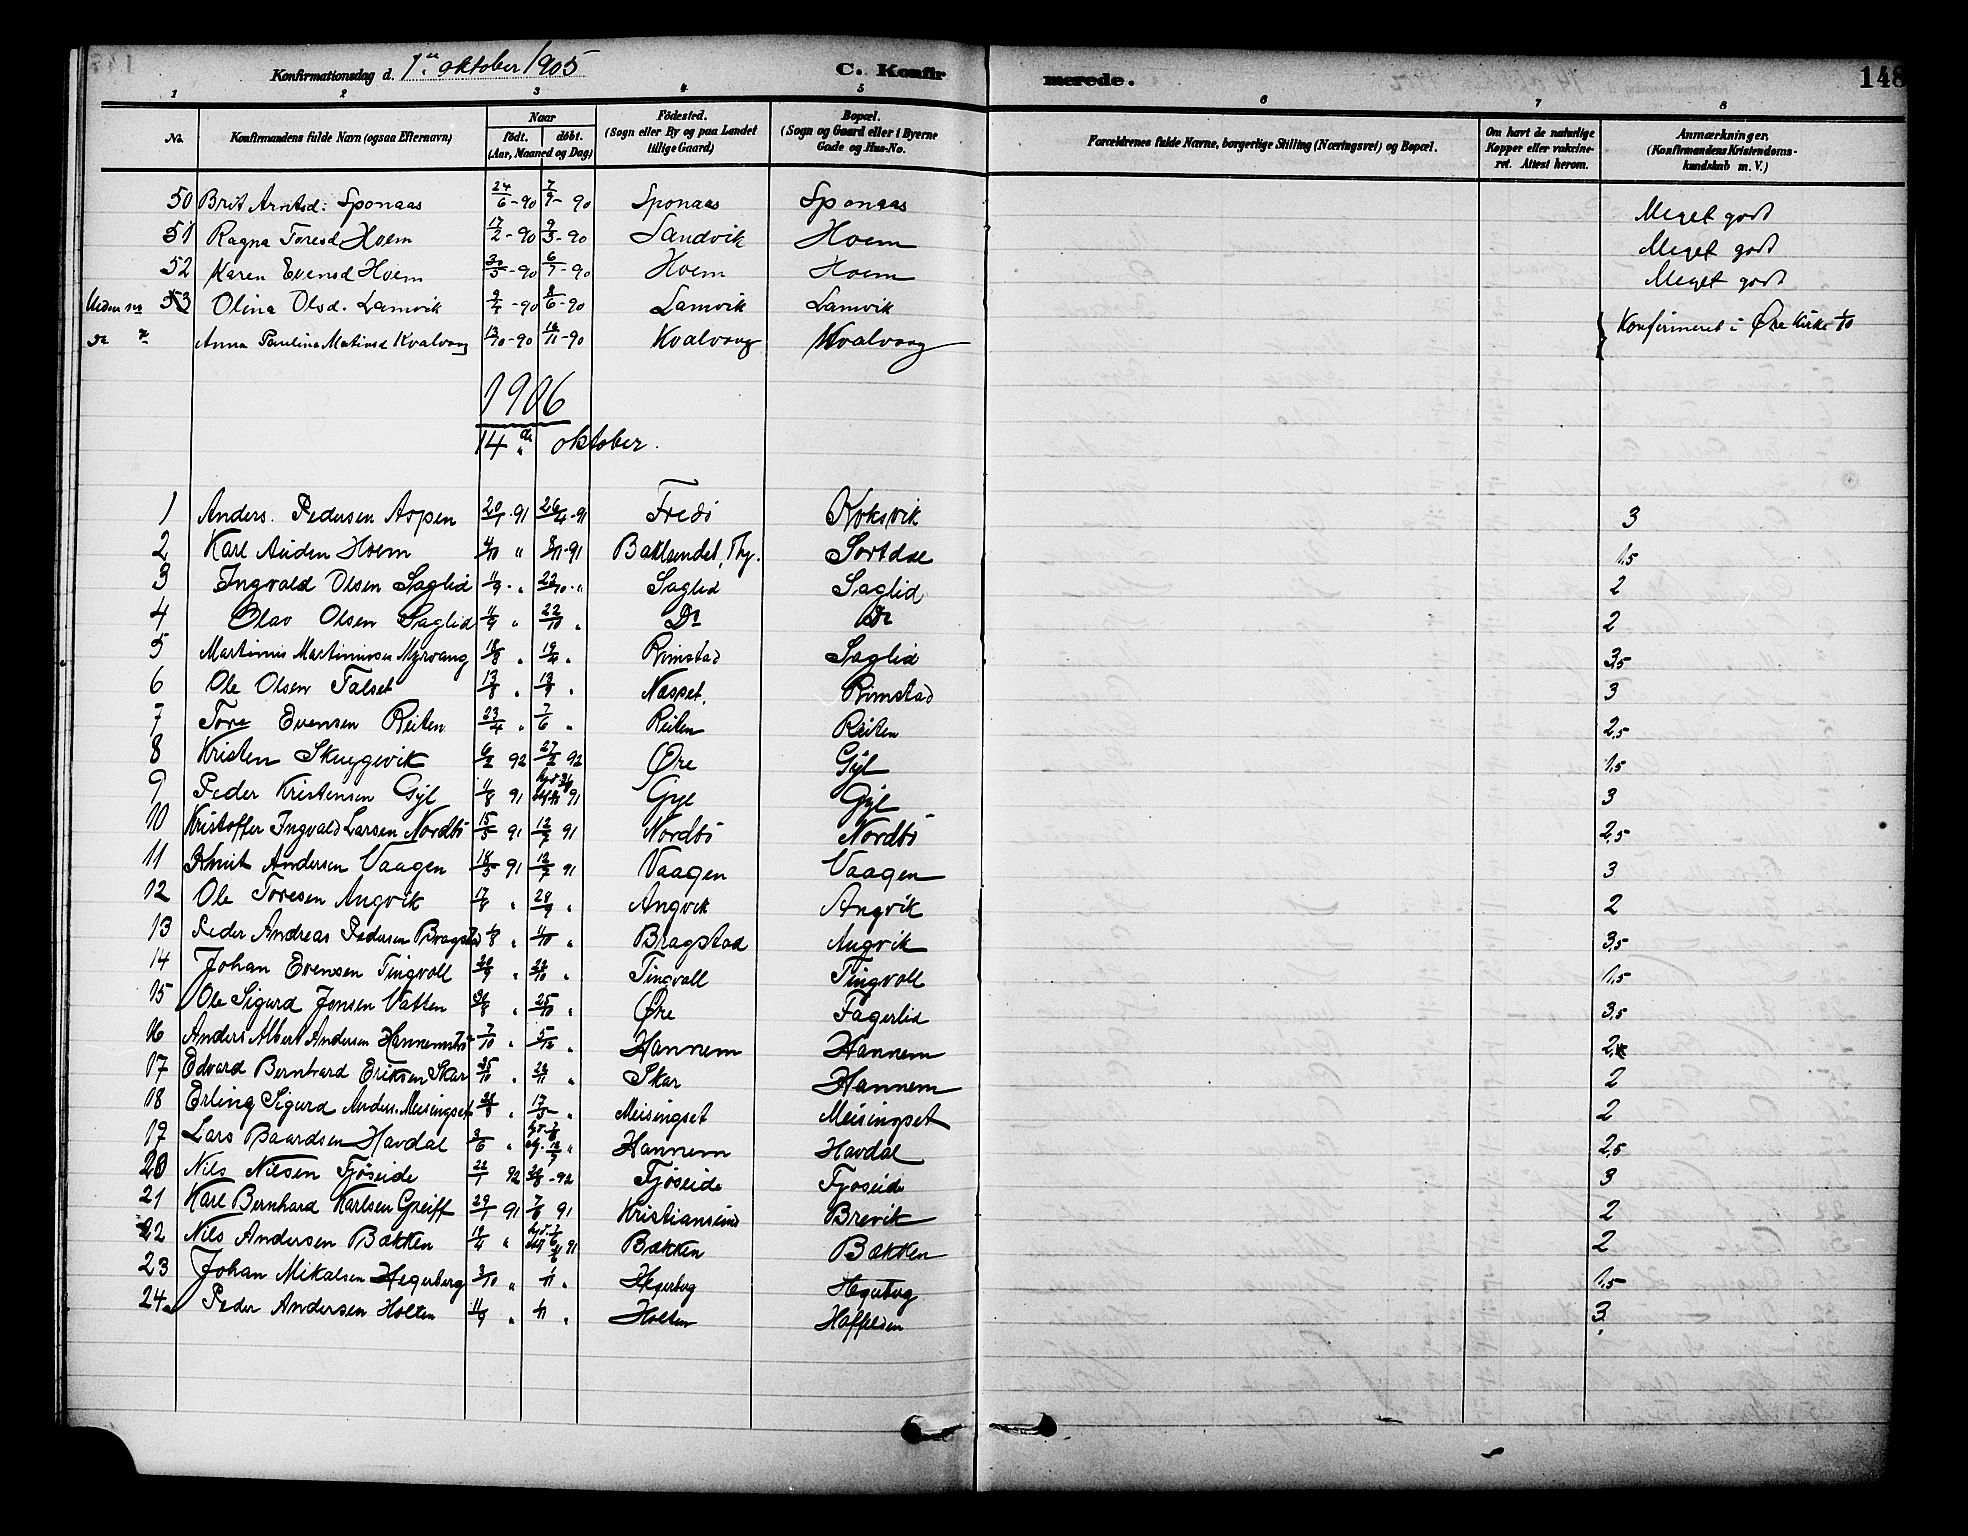 Konfirmationsdag d. 1ste oktober 1905 C. Konfirmerede. 148
1 2 3 4 5 6 7 8
No. Konfirmandens fulde Navn (ogsaa Efternavn) Naar født. døbt. (Aar, Maaned og Dag) Fødested. (Sogn eller By og paa Landet tillige Gaard) Bopæl. (Sogn og Gaard eller i Byerne Gade og Hus-No. Forældrenes fulde Navne, borgerlige Stilling (Næringsvei) og Bopæl. Om havt de naturlige Kopper eller vakcineret. Attest herom. Anmærkninger, (Konfirmandens Kristendomskundskab m. V.)
50 Brit Arntsd: Sponaas 24/6-90 7/9-90 Sponaas Sponaas Meget godt
51 Ragna Toresd Hoem 17/2-90 9/3-90 Sandvik Hoem Meget godt
52 Karen Evensd Hoem 30/5-90 6/7-90 Hoem Hoem Meget godt
53 Olina Olsd. Lamvik -90 8/6-90 Lamvik Lamvik
Anna Paulina Kvalvaag 13/10-90 16/11-90 Kvalvaag Kvalvaag } Konfirmeret i Øre Kirke 1/10
1906
14de oktober.
1 Anders Pedersen Aspen 20/1-91 26/4-91 Fredø Koksvik 3
2 Karl Auden Hoem 4/10 " 8/11-91 Baklandet, Thj. Sortdal 1,5
3 Ingvald Olsen Saglid 11/9-" 22/10-" Saglid Saglid 2
4 Olav Olsen Saglid 11/9 " 22/10 " Do Do 2
5 Martinus Martinusen Myrvang 18/3 " 19/4 " Rimstad Saglid 3,5
6 Ole Olsen Talset 13/8 " 13/9 " Næsset. Rimstad 3
7 Tore Evensen Reiten 23/4 " 7/6 " Reiten Reiten 2,5
8 Kristen Skuggevik 6/2 92 27/2 92 Øre Gyl 1,5
9 Peder Kristensen Gyl 11/8 91 91 Gyl Gyl 3
10 Kristoffer Ingvald Larsen Nordbø 15/5 91 12/7 91 Nordbø Nordbø 2,5
11 Knut Andersen Vaagen 18/5 91 12/7 91 Vaagen Vaagen 3
12 Ole Toresen Angvik 17/8 " 28/9 " Angvik Angvik 2
13 Peder Andreas Pedersen Bragstad " 11/10 " Bragstad Angvik 3,5
14 Johan Evensen Tingvoll 20/9 " 22/10 " Tingvoll Tingvoll 1,5
15 Ole Sigurd Jonsen Vatten " 25/10 " Øre Fagerlid 3,5
16 Anders Albert Andersen Hannemstø 7/10 " 5/12 " Hannem Hannem 2,
17 Edvard Bernhard Eriksen Skar 25/10 " 22/11 " Skar Hannem 2
18 Erling Sigurd Anders. Meisingset " 17/5 " Meisingset Meisingset 2
19 Lars Baardsen Havdal 3/6 " " Hannem Havdal 2,5
20 Nils Nilsen Fjøseide 22/1 92 -92 Fjøseide Fjøseide 3
21 Karl Bernhard Karlsen Greiff 29/1 91 7/8 91 Kristiansund Brevik 2
22 Nils Andersen Bækken 19/4 " 91 Bækken Bækken 2
23 Johan Mikalsen Hegerberg 3/10 " 1/11 " Hegerberg Hegerberg 1,5
24 Peder Andersen Holten 11/9 " 1/11 " Holten Haffelden 3